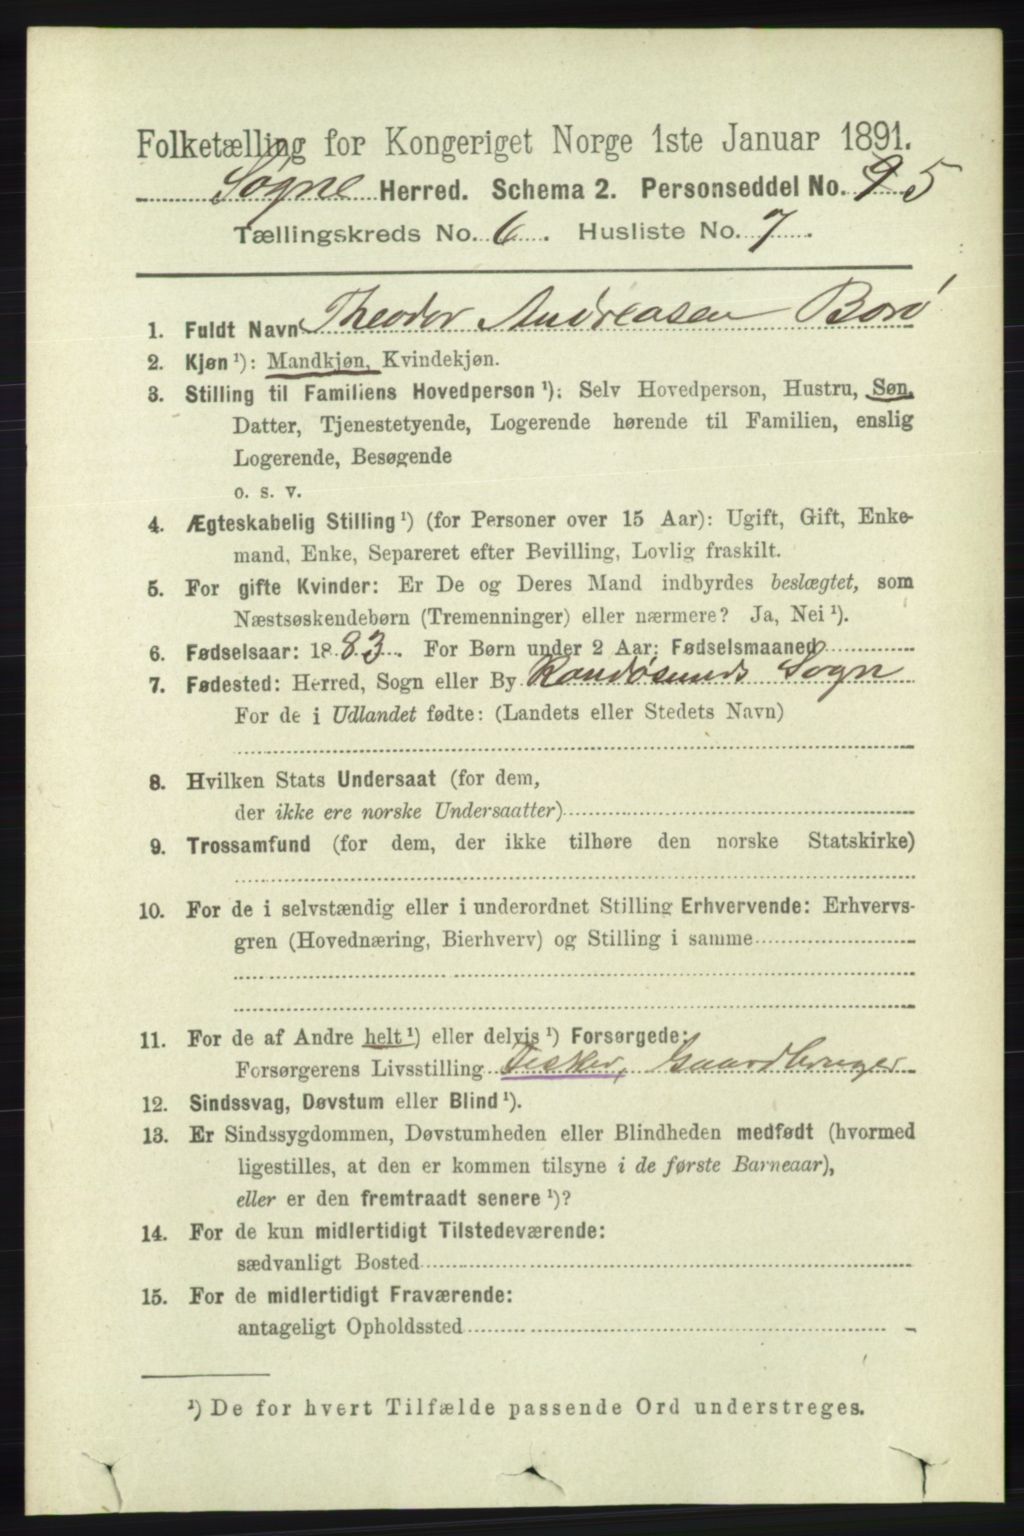 Folketælling for Kongeriget Norge 1ste Januar 1891.
Søgne Herred. Schema 2. Personseddel No. 95
Tællingskreds No. 6. Husliste No. 7.
1. Fuldt Navn Theodor Andreasen Borø
2. Kjøn¹): Mandkjøn, Kvindekjøn.
3. Stilling til Familiens Hovedperson¹): Selv Hovedperson, Hustru, Søn,
Datter, Tjenestetyende, Logerende hørende til Familien, enslig
Logerende, Besøgende
o. s. v.
4. Ægteskabelig Stilling¹) (for Personer over 15 Aar): Ugift, Gift, Enke-
mand, Enke, Separeret efter Bevilling, Lovlig fraskilt.
5. For gifte Kvinder: Er De og Deres Mand indbyrdes beslægtet, som
Næstsøskendebørn (Tremenninger) eller nærmere? Ja, Nei¹).
6. Fødselsaar: 1883. For Børn under 2 Aar: Fødselsmaaned
7. Fødested: Herred, Sogn eller By Randøsunds Sogn
For de i Udlandet fødte: (Landets eller Stedets Navn)
8. Hvilken Stats Undersaat (for dem,
der ikke ere norske Undersaatter)
9. Trossamfund (for dem, der ikke tilhøre den norske Statskirke)
10. For de i selvstændig eller i underordnet Stilling Erhvervende: Erhvervs-
gren (Hovednæring, Bierhverv) og Stilling i samme
11. For de af Andre helt¹) eller delvis¹) Forsørgede:
Forsørgerens Livsstilling Fisker, Gaardbruger
12. Sindssvag, Døvstum eller Blind¹).
13. Er Sindssygdommen, Døvstumheden eller Blindheden medfødt (hvormed
ligestilles, at den er kommen tilsyne i de første Barneaar),
eller er den fremtraadt senere¹)?
14. For de kun midlertidigt Tilstedeværende:
sædvanligt Bosted
15. For de midlertidigt Fraværende:
antageligt Opholdssted
¹) De for hvert Tilfælde passende Ord understreges.